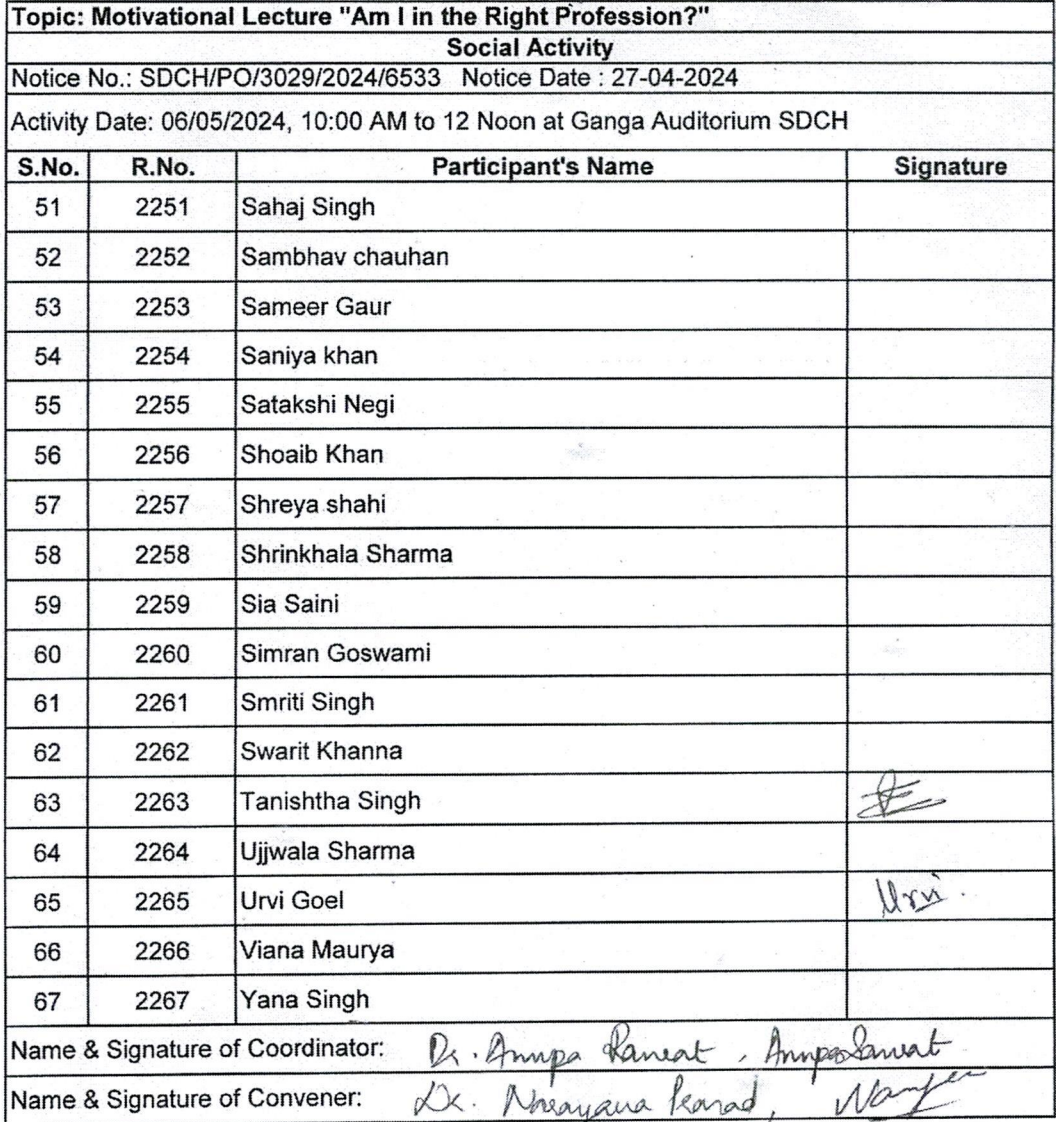 Topic: Motivational Lecture "Am I in the Right Profession?"
Social Activity
Notice No.: SDCH/PO/3029/2024/6533 Notice Date : 27-04-2024
Activity Date: 06/05/2024, 10:00 AM to 12 Noon at Ganga Auditorium SDCH
S.No. R.No. Participant's Name Signature
51 2251 Sahaj Singh
52 2252 Sambhav chauhan
53 2253 Sameer Gaur
54 2254 Saniya khan
55 2255 Satakshi Negi
56 2256 Shoaib Khan
57 2257 Shreya shahi
58 2258 Shrinkhala Sharma
59 2259 Sia Saini
60 2260 Simran Goswami
61 2261 Smriti Singh
62 2262 Swarit Khanna
63 2263 Tanishtha Singh
64 2264 Ujjwala Sharma
65 2265 Urvi Goel Urvi.
66 2266 Viana Maurya
67 2267 Yana Singh
Name & Signature of Coordinator: Dr. Anupa
Name & Signature of Convener: Dr.